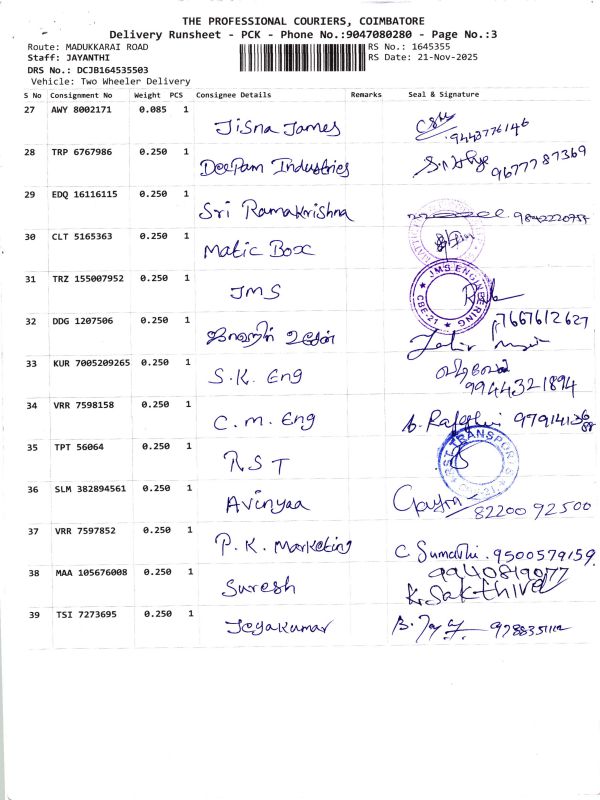 THE PROFESSIONAL COURIERS, COIMBATORE
Delivery Runsheet - PCK - Phone No.:9047080280 - Page No.:3
Route: MADUKKARAI ROAD
RS No.: 1645355
Staff: JAYANTHI
RS Date: 21-Nov-2025
DRS No.: DCJB164535503
Vehicle: Two Wheeler Delivery
S No Consignment No Weight PCS Consignee Details Remarks Seal & Signature
27 AWY 8002171 0.085 1
Jisna James
9443776146
28 TRP 6767986 0.250 1
Deepam Industries
9677787369
29 EDQ 16116115 0.250 1
Sri Ramakrishna
30 CLT 5165363 0.250 1
Matic Box
31 TRZ 155007952 0.250 1
JMS
JMS ENGINEERING
CBE-21
32 DDG 1207506 0.250 1
7667612627
33 KUR 7005209265 0.250 1
S.K. Eng
9944321894
34 VRR 7598158 0.250 1
C.M. Eng
35 TPT 56064 0.250 1
RST
RST TRANSPORTS
36 SLM 382894561 0.250 1
Avinyaa
82200 92500
37 VRR 7597852 0.250 1
P.K. Marketing
C Sumathi. 9500579159.
38 MAA 105676008 0.250 1
Suresh
9940819077
K. Sakthivel
39 TSI 7273695 0.250 1
Jeyakumar